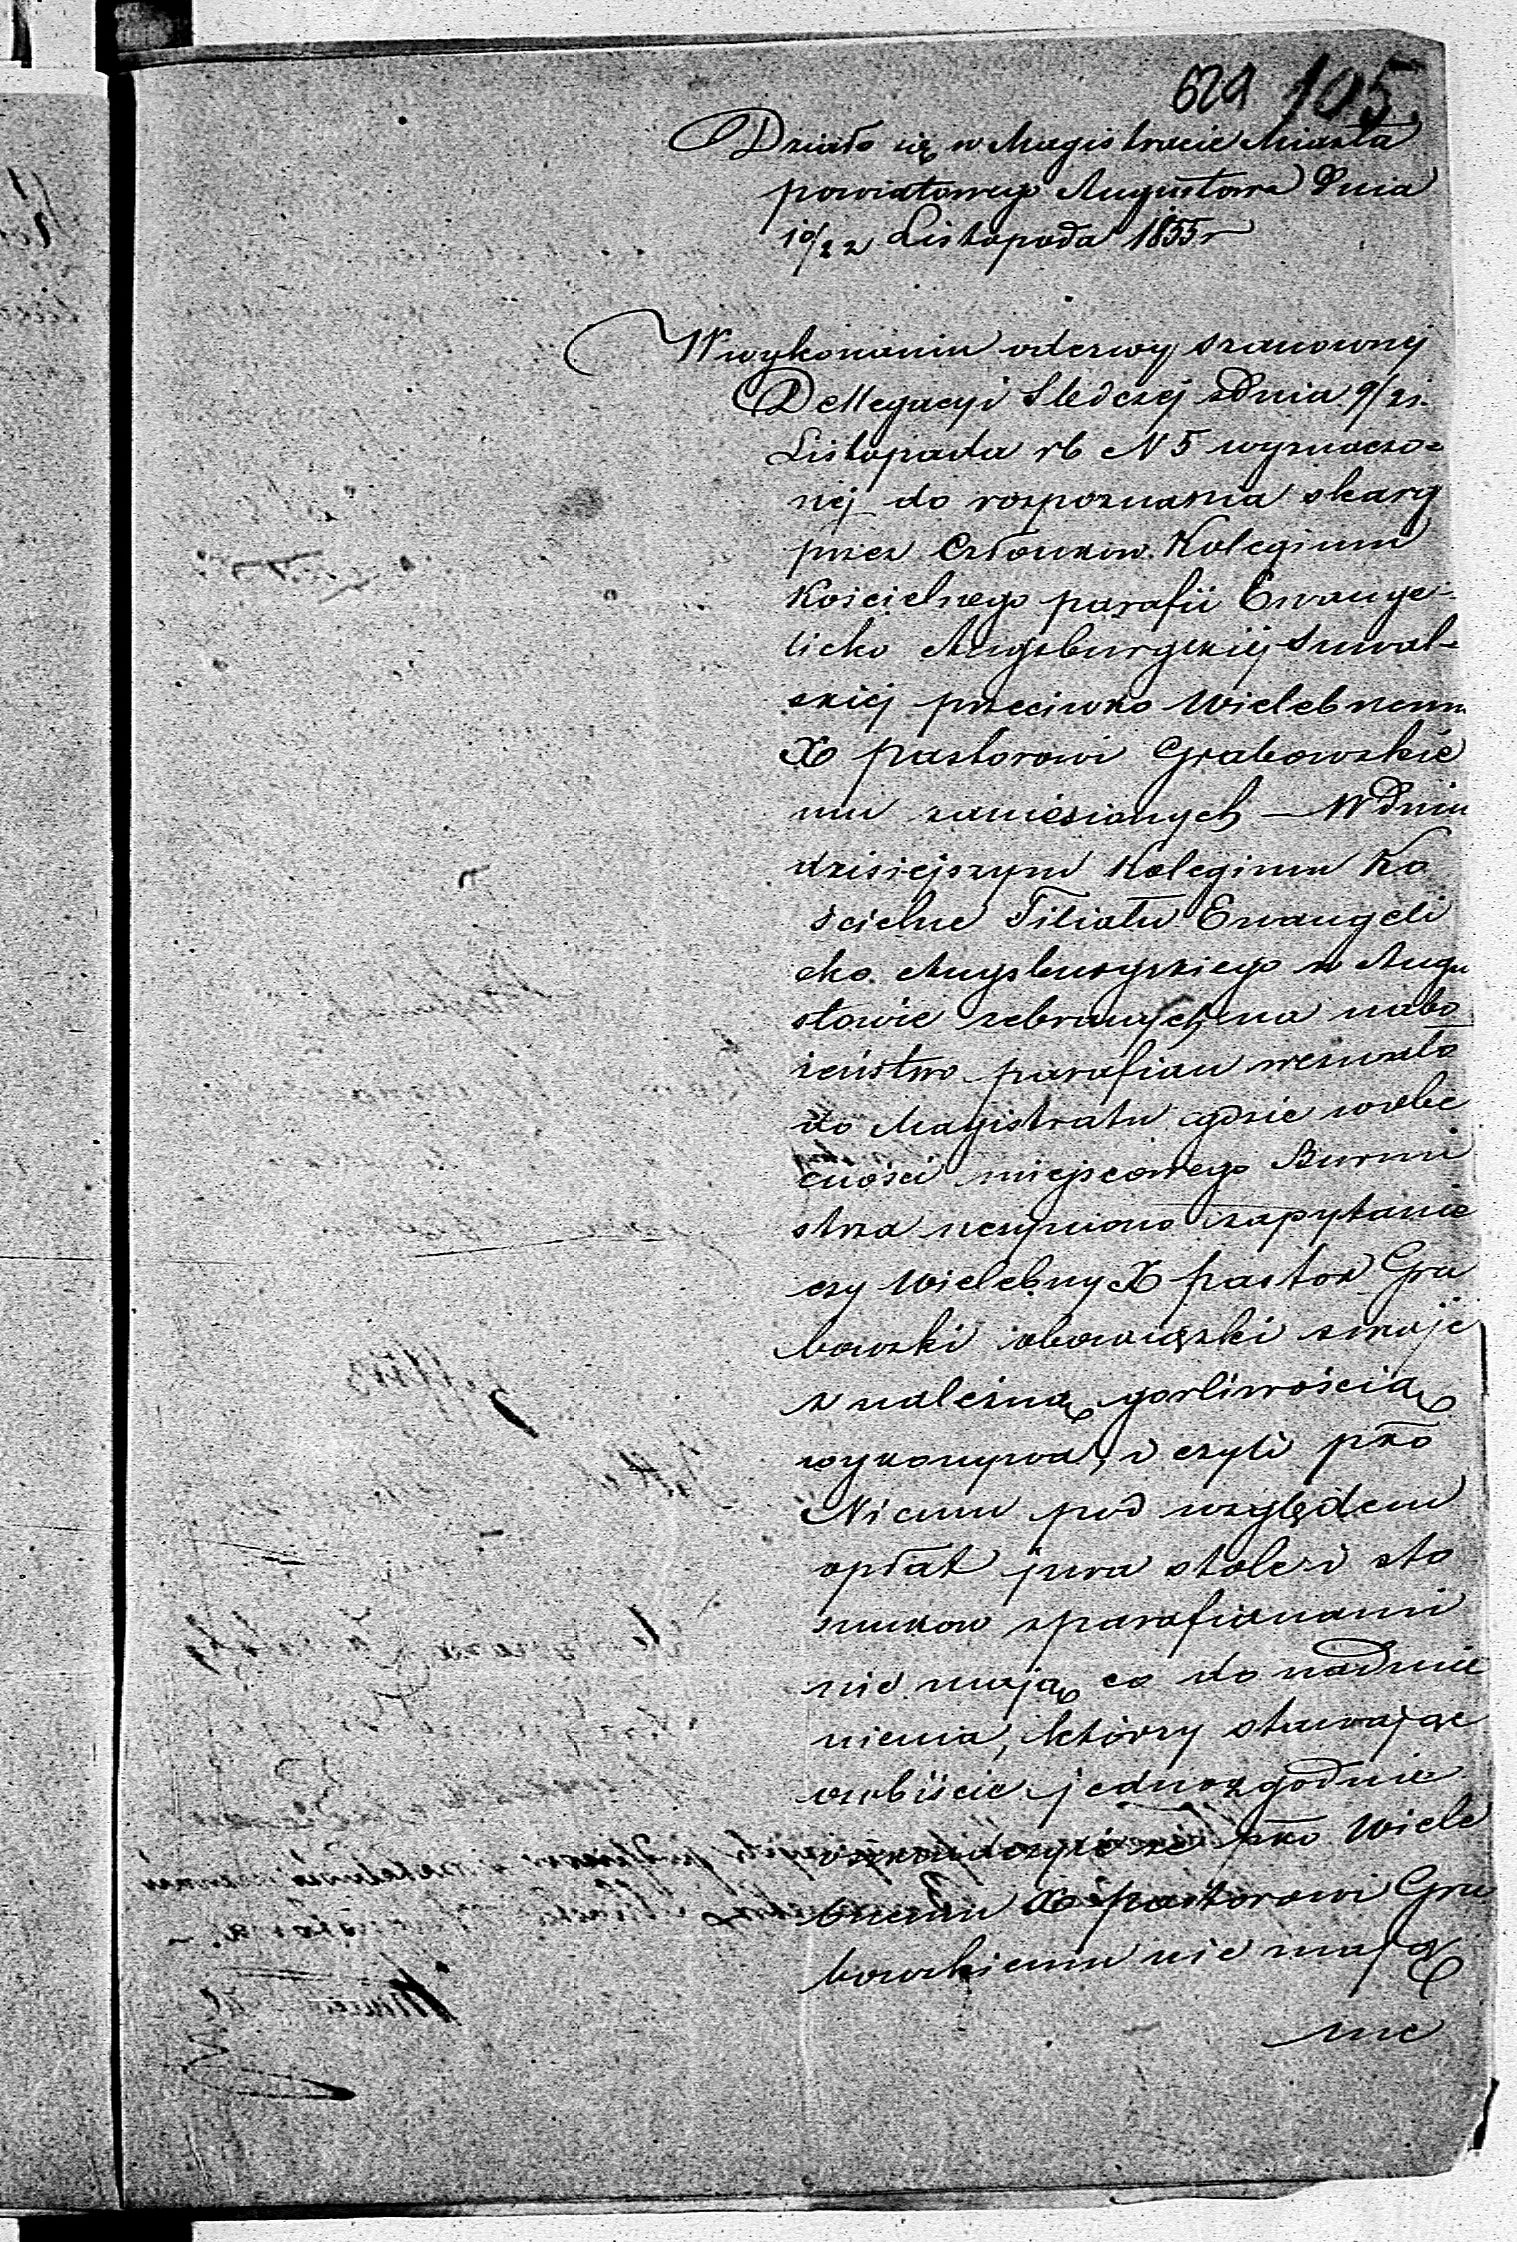 629 105
Działo się w Magistracie Miasta
powiatowego Augustowa Dnia
10/22 Listopada 1855 r
W wykonaniu odezwy szanownej
Dellegacyi Sledczej z Dnia 9/21.
Listopada rb N 5 wyznaczo=
nej do rozpoznania skarg
przez Członkow Kolegium
Kościelnego parafii Ewange=
licko Augsburgskiej Suwal=
skiej przeciwko Wielebnemu
X pastorowi Grabowskie
mu zaniesionych — W dniu
dzisiejszym Kolegium Ko
ścielne Filiału Ewangeli
cko Augsburgskiego w Augu
stowie zebranych na nabo
żeństwo parafian wezwało
do Magistratu gdzie w obe
cności miejscowego Burmi
strza uczyniono zapytanie
czy Wielebny X pastor Gra
bowski obowiązki swoje
z należną gorliwością
wykonywa, i czyli pko
Niemu pod względem
opłat jura stole i sto
sunkow z parafianami
nie mają co do nadmie
nienia, którzy stawając
osobiście jednozgodnie
że pko Wiele
bnemu X Pastorowi Gra
bowskiemu nie mają